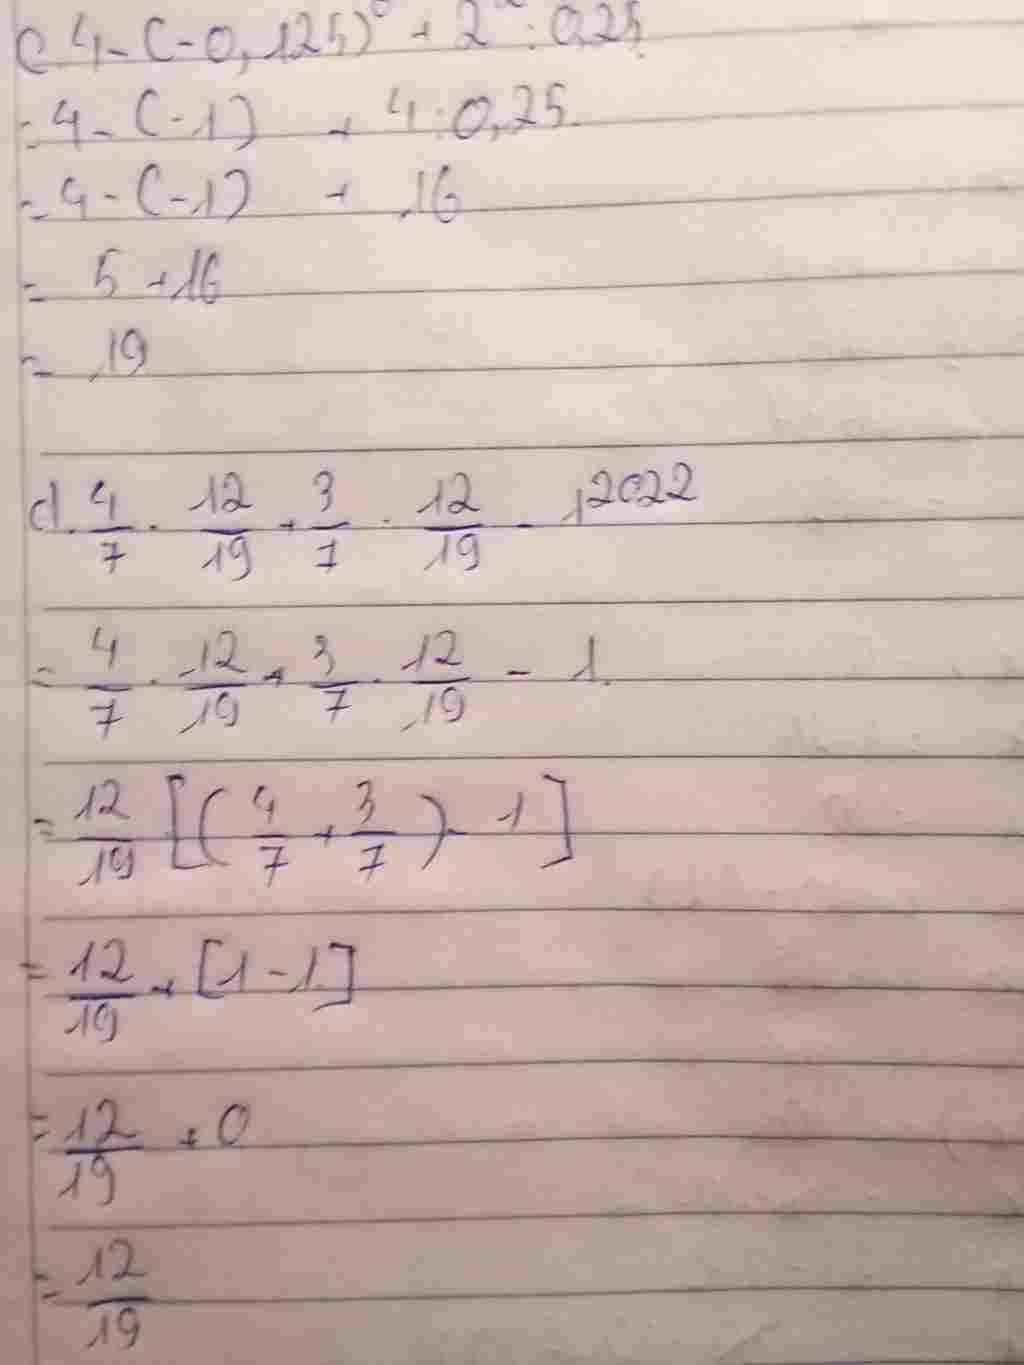 c. 4 - (-0,125)⁰ + 2² : 0,25
= 4 - (-1) + 4 : 0,25.
= 4 - (-1) + 16
= 5 + 16
= 19
d. 4/7 . 12/19 + 3/7 . 12/19 - 1²⁰²²
= 4/7 . 12/19 + 3/7 . 12/19 - 1.
= 12/19 [(4/7 + 3/7) - 1]
= 12/19 + [1 - 1]
= 12/19 + 0
= 12/19